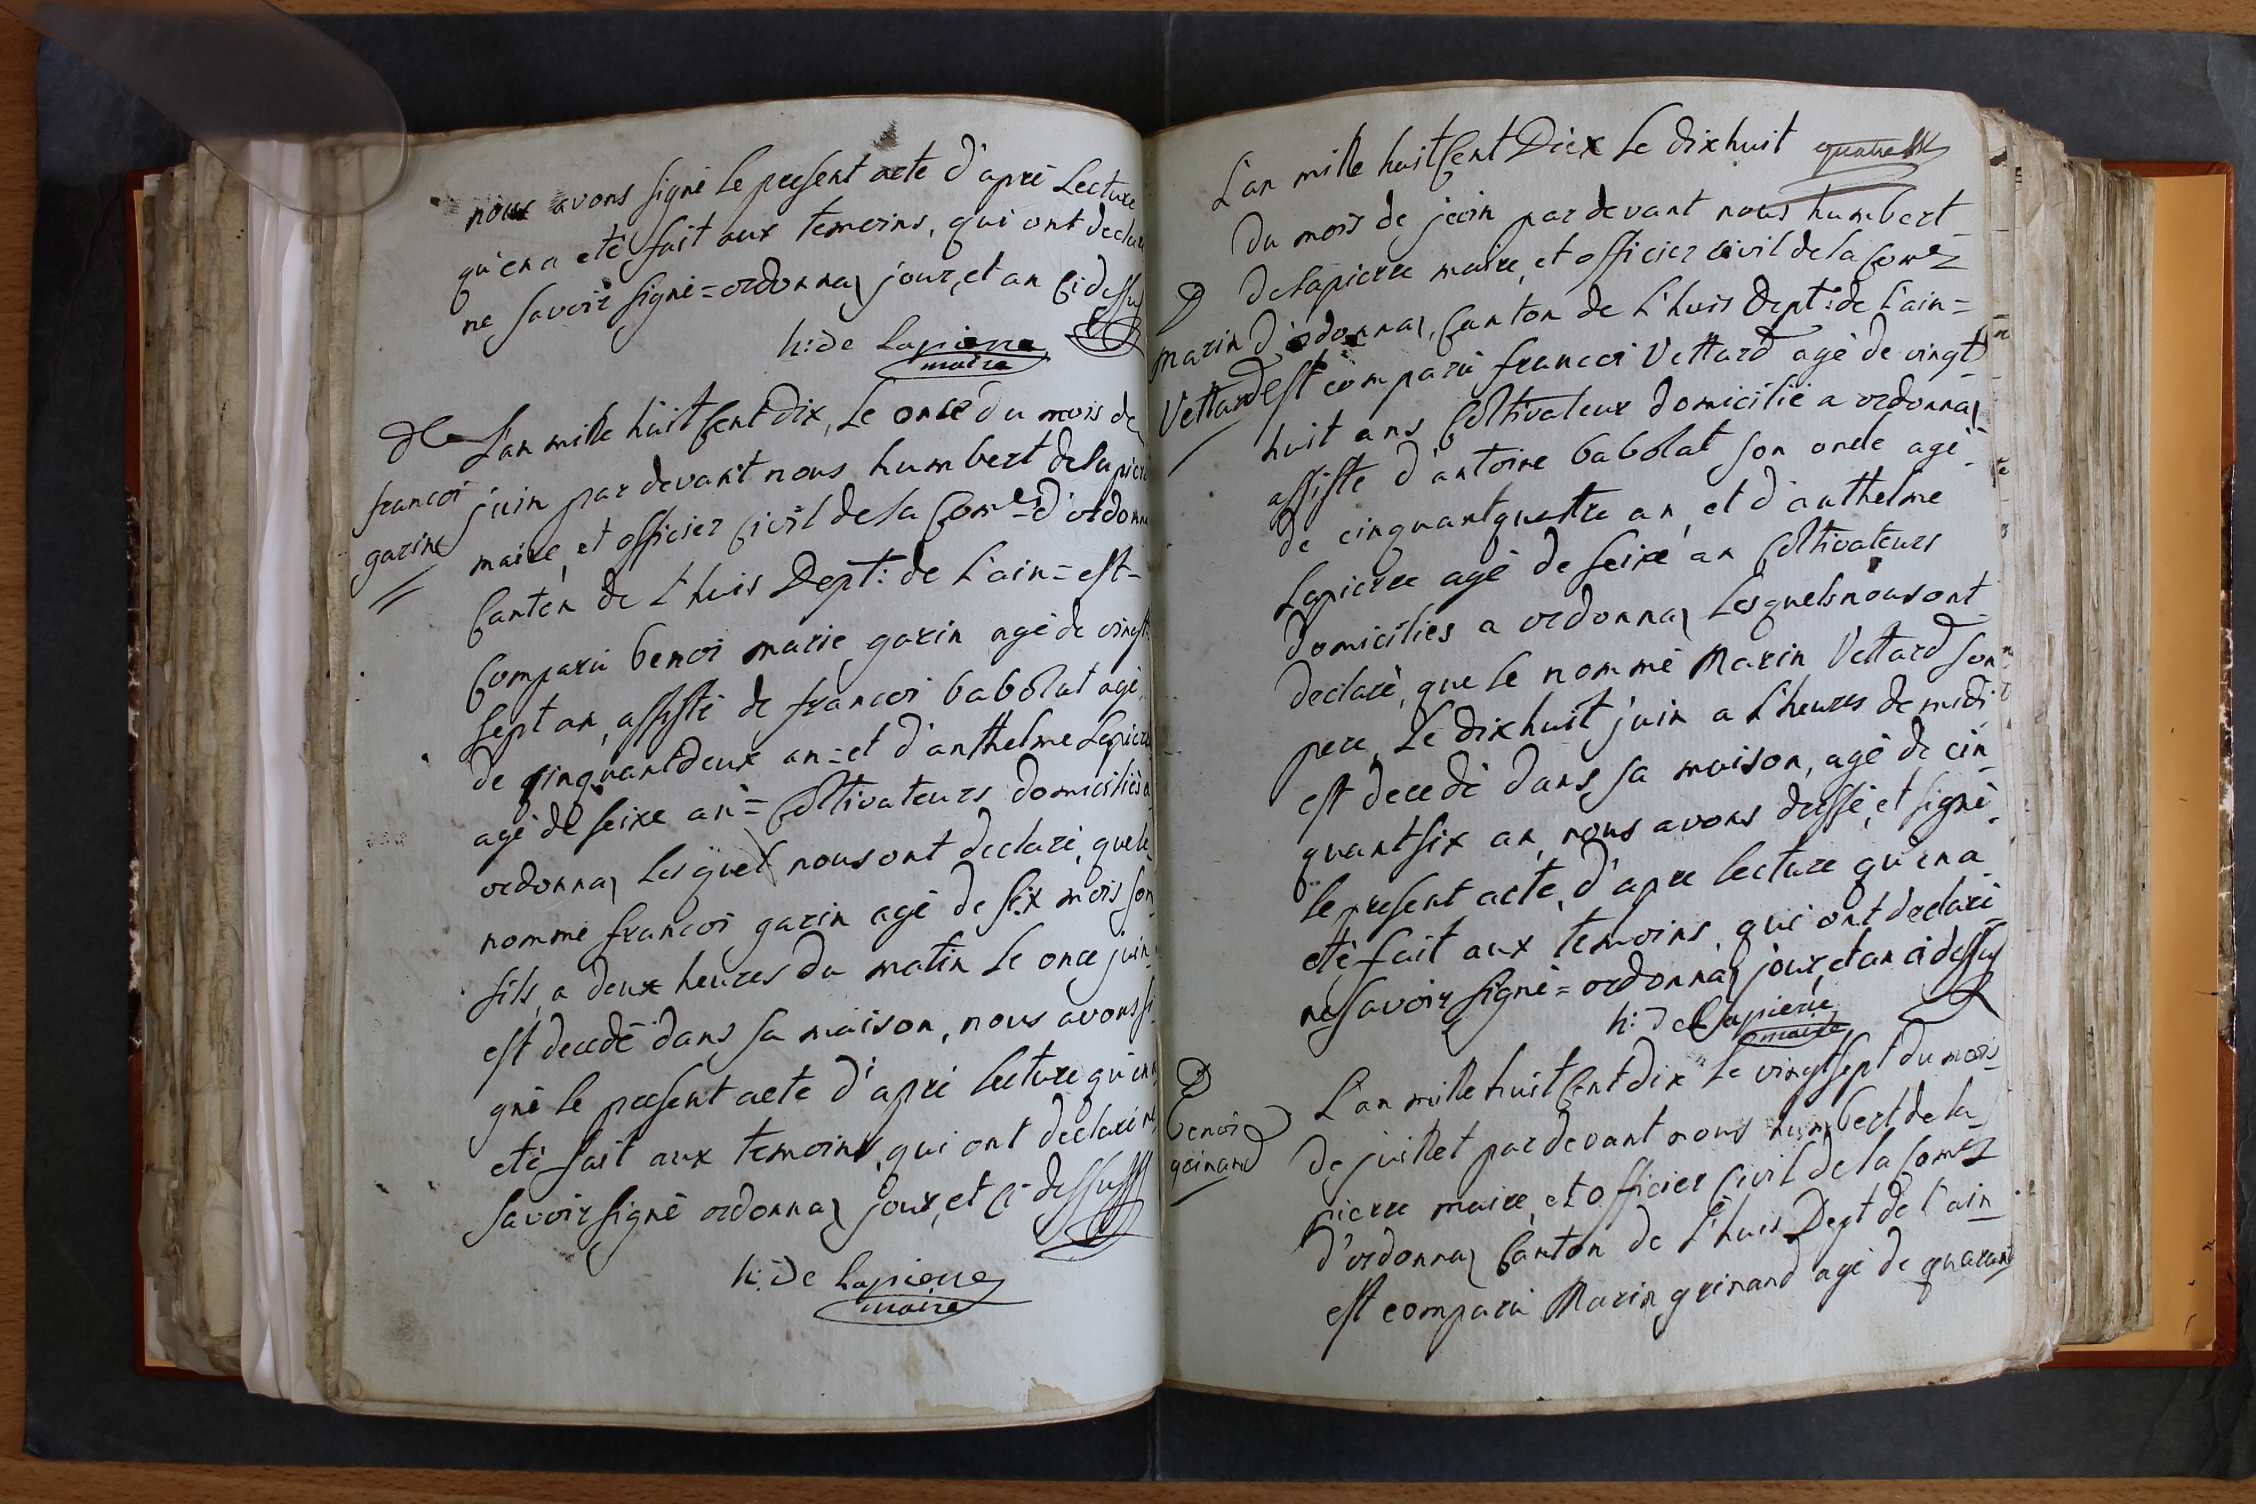 nous avons signé le present acte d'aprè Lecture
qu'en a eté fait aux temoins, qui ont declaré
ne savoir signé = ordonnaz jour, et an Ci dessus
h: de Lapierre
maire
L'an mille huit Cent Dix, Le onze du mois de
juin par devant nous humbert delapierre
maire, et officier Civil de la Com.e d'ordonna
Canton de L'huis Dept: de L'ain = est =
Comparu benoi marie garin agé de vingt
sept an, assisté de francoi babolat agé
de cinquantdeux an = et d'anthelme Lapierre
agé de seixe an = Coltivateurs domiciliés a
ordonnaz Lesquel nous ont declaré, que le
nommé francoi garin agé de six mois son
fils, a deux heures du matin Le onze juin
est decedé dans sa maison, nous avons si
gné le present acte d'aprè lecture qu'en a
eté fait aux temoins, qui ont declaré ne
savoir signé ordonnaz jour, et Ci dessus
h: de Lapierre
maire
D
francoi
garin
L'an mille huit Cent Diex Le dix huit
du mois de juin par devant nous humbert
delapierre maire, et officier civil de la Com.e
d'ordonnaz, Canton de L'huis Dept: de L'ain =
est comparu francoi Vettard agé de vingt
huit ans Coltivateur domicilié a ordonnaz
assisté d'antoine babolat son oncle agé
de cinquantquattre an, et d'anthelme
Lapierre agé de seixe an Coltivateurs
domiciliés a ordonnaz Lesquels nous ont
declaré, que le nommé Marin Vettard son
pere, Le dix huit juin a L'heures de midi
est decedé dans sa maison, agé de cin
quantsix an, nous avons dressé, et signé
le present acte, d'apre lecture qu'en a
eté fait aux temoins, qui ont declaré
ne savoir signé = ordonnaz jour, et an ci dessus
h: de Lapierre
maire
D
marin
Vettard
L'an mille huit Cent dix Le vingt sept du mois
de juillet par devant nous humbert de la
pierre maire, et officier Civil de la Com.e
d'ordonnaz Canton de L'huis Dept de L'ain
est comparu Marin grinand agé de quarant
D
benoi
grinand